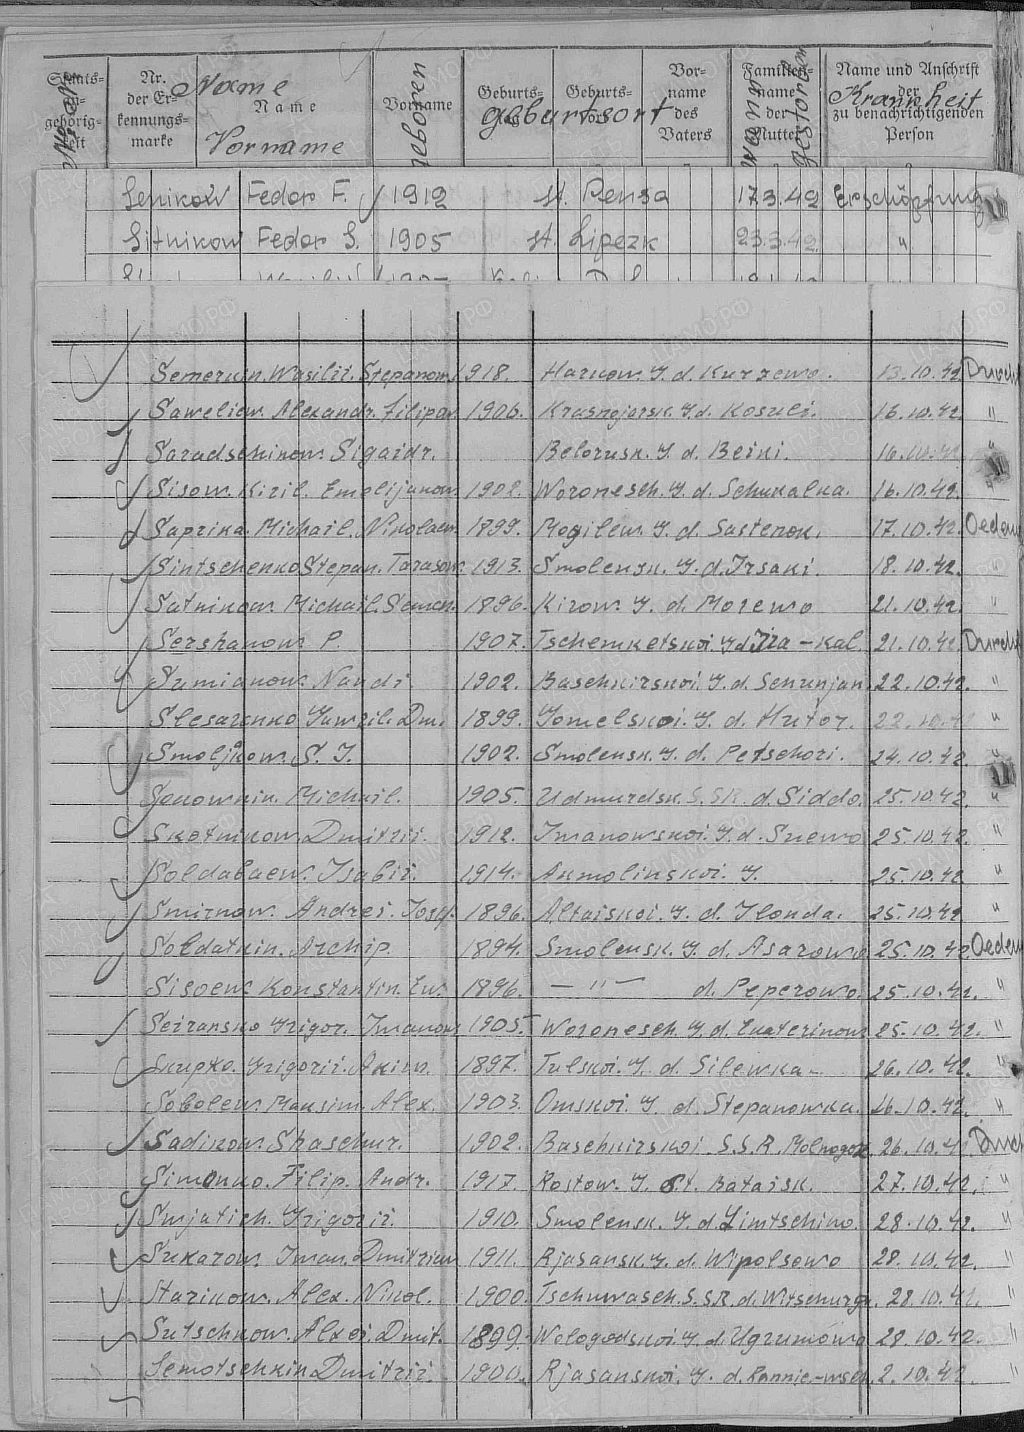 Staats-
an-
gehörig-
keit
Nr.
der Er-
kennungs-
marke
Name
Name
Vorname
Vorname
geboren
Geburts- Geburts-
geburtsort
Vor-
name
des
Vaters
Familien-
name
der
Mutter
wann gestorben
Name und Anschrift
der
Krannheit
zu benachrichtigenden
Person
Senikow Fedor F. 1912 st. Pensa 17.3.42 Erschöpfung
Sitnikow Fedor S. 1905 st. Lipezk 23.3.42 "
Semernin. Wasilii. Stepanow. 1918. Harnow. J. d. Kurzewo. 13.10.42
Saweliew. Alexandr. Filipow. 1906. Krasnojarsk. J. d. Kosuli. 16.10.42
Saradschinow Sigaidr. Belorusk. J. d. Beini. 16.10.42 "
Sisow. Kiril. Emelijanow. 1902. Woronesch. J. d. Schukalka. 16.10.42. "
Saprika. Michail. Nikolaew. 1899. Mogilew. J. d. Sastenok. 17.10.42. Oedem
Sintschenko Stepan. Tarasow. 1913. Smolensk. J. d. Irsaki. 18.10.42. "
Satninow. Michail. Semen. 1896. Kirow. J. d. Morewo 21.10.42. "
Sershanow P. 1907. Tschemketskoi. J d Ira-Kal. 21.10.42 Durchf
Sumianow. Nandi. 1902. Baschkirskoi. J. d. Senunjan 22.10.42. "
Slesarenko Gawril. Dm. 1899. Gomelskoi. J. d. Hutor. 22.10.42 "
Smoljkow. S. J. 1902. Smolensk. J. d. Petschori. 24.10.42. "
Michail. 1905. Udmurdsk. S.SR. d. Siddo. 25.10.42. "
Skotnikow. Dmitrii. 1912. Iwanowskoi. J. d. Snewo 25.10.42. "
Soldabaew. Isabii. 1914. Akmolinskoi. J. 25.10.42 "
Smirnow. Andrei. Josif. 1896. Altaiskoi. J. d. Ilonda. 25.10.42 "
Soldatkin. Archip. 1894. Smolensk. J. d. Asarowo. 25.10.42 Oedem
Sisoew. Konstantin. Ew. 1896. — " — d. Peperowo. 25.10.42. "
Seiransko Grigor. Iwanow. 1905. Woronesch. J. d. Ekaterinow 25.10.42. "
Skupko. Grigorii. Akim. 1897. Tulskoi. J. d. Silewka - 26.10.42. "
Sobolew. Maksim. Alex. 1903. Omskoi. J d. Stepanowka. 26.10.42. "
Sadikow. Shaschur. 1902. Baschkirskoi S.S.R. 26.10.42.
Simonko. Filip. Andr. 1917. Rostow. J. st. Bataisk. 27.10.42. "
Smjatich. Grigorii. 1910. Smolensk. J. d. Limtschino. 28.10.42. "
Sukarow. Iwan. Dmitriew 1911. Rjasansk. J. d. Wipolsowo 28.10.42. "
Starikow. Alex. Nikol. 1900. Tschuwasch. S.SR. d. Witschurga. 28.10.42. "
Sutschkow. Alxei. Dmit. 1899. Wologodskoi. J. d. Ugrumowo 28.10.42. "
Semotschkin Dmitrii. 1900. Rjasanskoi. J. d. 2.10.42. "